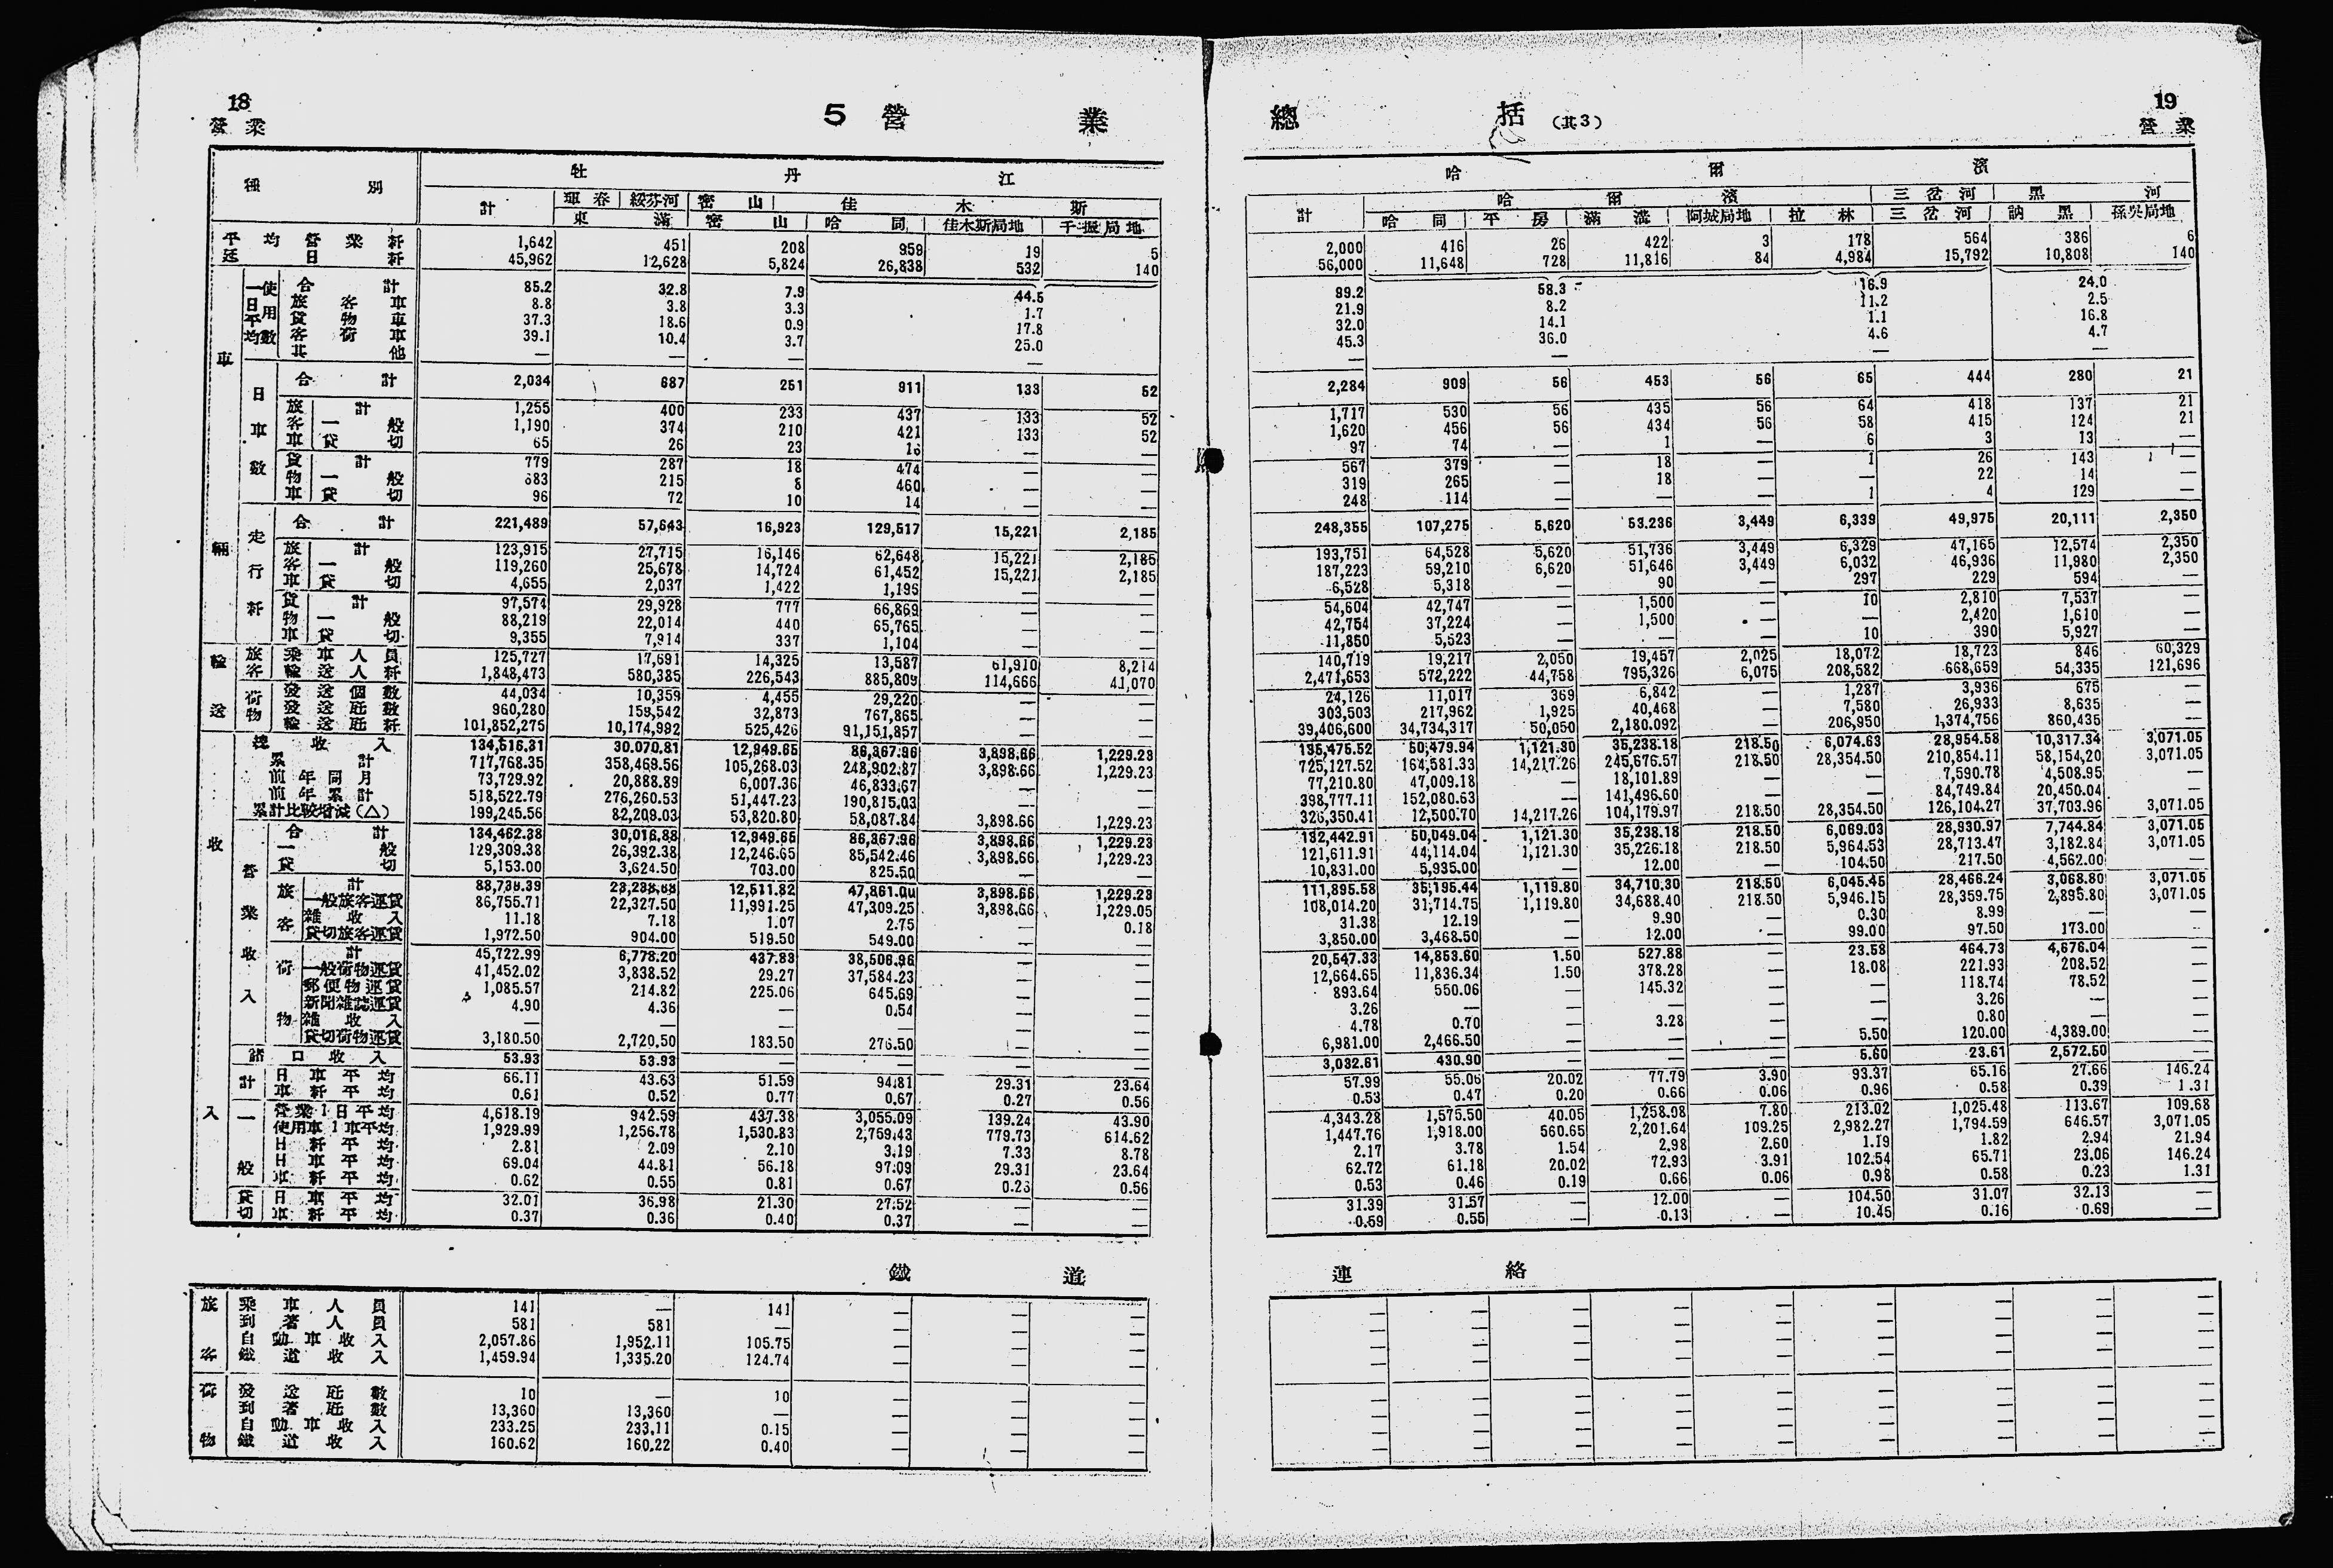 18
營業
5 營業
種別
牡丹江
計 琿春 綏芬河 密山 佳木斯
東滿 密山 哈同 佳木斯局地 千振局地
平均營業粁 1,642 451 208 959 19 5
延日粁 45,962 12,628 5,824 26,838 532 140
車輛
一日平均使用數
合計 85.2 32.8 7.9 44.5
旅客車 8.8 3.8 3.3 1.7
貨物車 37.3 18.6 0.9 17.8
客荷車 39.1 10.4 3.7 25.0
其他 — — — —
日車數
合計 2,034 687 251 911 133 52
旅客車 計 1,255 400 233 437 133 52
一般 1,190 374 210 421 133 52
貸切 65 26 23 16 — —
貨物車 計 779 287 18 474 — —
一般 683 215 8 460 — —
貸切 96 72 10 14 — —
走行粁
合計 221,489 57,643 16,923 129,517 15,221 2,185
旅客車 計 123,915 27,715 16,146 62,648 15,221 2,185
一般 119,260 25,678 14,724 61,452 15,221 2,185
貸切 4,655 2,037 1,422 1,196 — —
貨物車 計 97,574 29,928 777 66,869 — —
一般 88,219 22,014 440 65,765 — —
貸切 9,355 7,914 337 1,104 — —
輸送
旅客 乘車人員 125,727 17,691 14,325 13,587 61,910 8,214
輸送人粁 1,848,473 580,385 226,543 885,809 114,666 41,070
荷物 發送個數 44,034 10,359 4,455 29,220 — —
發送瓩數 960,280 159,542 32,873 767,865 — —
輸送瓩粁 101,852,275 10,174,992 525,426 91,151,857 — —
收入
總收入 134,516.31 30,070.81 12,949.65 86,367.96 3,898.66 1,229.23
累計 717,768.35 358,469.56 105,268.03 248,902.87 3,898.66 1,229.23
前年同月 73,729.92 20,888.89 6,007.36 46,833.67
前年累計 518,522.79 276,260.53 51,447.23 190,815.03
累計比較增減(△) 199,245.56 82,209.03 53,820.80 58,087.84 3,898.66 1,229.23
營業收入
合計 134,462.38 30,016.88 12,949.65 86,367.96 3,898.66 1,229.23
一般 129,309.38 26,392.38 12,246.65 85,542.46 3,898.66 1,229.23
貸切 5,153.00 3,624.50 703.00 825.50 — —
旅客 計 88,739.39 23,238.68 12,511.82 47,861.00 3,898.66 1,229.23
一般旅客運賃 86,755.71 22,327.50 11,991.25 47,309.25 3,898.66 1,229.05
雜收入 11.18 7.18 1.07 2.75 — 0.18
貸切旅客運賃 1,972.50 904.00 519.50 549.00 — —
荷物 計 45,722.99 6,778.20 437.83 38,506.96 — —
一般荷物運賃 41,452.02 3,838.52 29.27 37,584.23 — —
郵便物運賃 1,085.57 214.82 225.06 645.69 — —
新聞雜誌運賃 4.90 4.36 — 0.54 — —
雜收入 — — — — — —
貸切荷物運賃 3,180.50 2,720.50 183.50 276.50 — —
諸口收入 53.93 53.93 — — — —
計 日車平均 66.11 43.63 51.59 94.81 29.31 23.64
車粁平均 0.61 0.52 0.77 0.67 0.27 0.56
一般 營業1日平均 4,618.19 942.59 437.38 3,055.09 139.24 43.90
使用車1車平均 1,929.99 1,256.78 1,530.83 2,759.43 779.73 614.62
日粁平均 2.81 2.09 2.10 3.19 7.33 8.78
日車平均 69.04 44.81 56.18 97.09 29.31 23.64
車粁平均 0.62 0.55 0.81 0.67 0.26 0.56
貸切 日車平均 32.01 36.98 21.30 27.52 — —
車粁平均 0.37 0.36 0.40 0.37 — —
鐵道
旅客 乘車人員 141 — 141 — — —
到著人員 581 581 — — — —
自動車收入 2,057.86 1,952.11 105.75 — — —
鐵道收入 1,459.94 1,335.20 124.74 — — —
荷物 發送瓩數 10 — 10 — — —
到著瓩數 13,360 13,360 — — — —
自動車收入 233.25 233.11 0.15 — — —
鐵道收入 160.62 160.22 0.40 — — —
19
營業
總括(其3)
哈爾濱
計 哈爾濱 三岔河 黑河
哈同 平房 滿溝 阿城局地 拉林 三岔河 訥黑 孫吳局地
2,000 416 26 422 3 178 564 386 6
56,000 11,648 728 11,816 84 4,984 15,792 10,808 140
99.2 58.3 16.9 24.0
21.9 8.2 11.2 2.5
32.0 14.1 1.1 16.8
45.3 36.0 4.6 4.7
— — — —
2,284 909 56 453 56 65 444 280 21
1,717 530 56 435 56 64 418 137 21
1,620 456 56 434 56 58 415 124 21
97 74 — 1 — 6 3 13 —
567 379 — 18 — 1 26 143 —
319 265 — 18 — — 22 14 —
248 114 — — — 1 4 129 —
248,355 107,275 5,620 53.236 3,449 6,339 49,975 20,111 2,350
193,751 64,528 5,620 51,736 3,449 6,329 47,165 12,574 2,350
187,223 59,210 6,620 51,646 3,449 6,032 46,936 11,980 2,350
6,528 5,318 — 90 — 297 229 594 —
54,604 42,747 — 1,500 — 10 2,810 7,537 —
42,754 37,224 — 1,500 — — 2,420 1,610 —
11,850 5,523 — — — 10 390 5,927 —
140,719 19,217 2,050 19,457 2,025 18,072 18,723 846 60,329
2,471,653 572,222 44,758 795,326 6,075 208,582 668,659 54,335 121,696
24,126 11,017 369 6,842 — 1,287 3,936 675 —
303,503 217,962 1,925 40,468 — 7,580 26,933 8,635 —
39,406,600 34,734,317 50,050 2,180.092 — 206,950 1,374,756 860,435 —
135,475.52 50,479.94 1,121.30 35,238.18 218.50 6,074.63 28,954.58 10,317.34 3,071.05
725,127.52 164,581.33 14,217.26 245,676.57 218.50 28,354.50 210,854.11 58,154.20 3,071.05
77,210.80 47,009.18 — 18,101.89 — — 7,590.78 4,508.95 —
398,777.11 152,080.63 — 141,496.60 — — 84,749.84 20,450.04 —
326,350.41 12,500.70 14,217.26 104,179.97 218.50 28,354.50 126,104.27 37,703.96 3,071.05
132,442.91 50,049.04 1,121.30 35,238.18 218.50 6,069.03 28,930.97 7,744.84 3,071.05
121,611.91 44,114.04 1,121.30 35,226.18 218.50 5,964.53 28,713.47 3,182.84 3,071.05
10,831.00 5,935.00 — 12.00 — 104.50 217.50 4,562.00 —
111,895.58 35,195.44 1,119.80 34,710.30 218.50 6,045.45 28,466.24 3,068.80 3,071.05
108,014.20 31,714.75 1,119.80 34,688.40 218.50 5,946.15 28,359.75 2,895.80 3,071.05
31.38 12.19 9.90 — 0.30 8.99 — —
3,850.00 3,468.50 12.00 — 99.00 97.50 173.00
20,547.33 14,853.60 1.50 527.88 — 23.58 464.73 4,676.04 —
12,664.65 11,836.34 1.50 378.28 — 18.08 221.93 208.52 —
893.64 550.06 145.32 — — 118.74 78.52 —
3.26 — — — — — 3.26 — —
4.78 0.70 — 3.28 — — 0.80 — —
6,981.00 2,466.50 — — — 5.50 120.00 4,389.00 —
3,032.61 430.90 — — — 5.60 23.61 2,572.50 —
57.99 55.06 20.02 77.79 3.90 93.37 65.16 27.66 146.24
0.53 0.47 0.20 0.66 0.06 0.96 0.58 0.39 1.31
4,343.28 1,575.50 40.05 1,258.08 7.80 213.02 1,025.48 113.67 109.68
1,447.76 1,918.00 560.65 2,201.64 109.25 2,982.27 1,794.59 646.57 3,071.05
2.17 3.78 1.54 2.98 2.60 1.19 1.82 2.94 21.94
62.72 61.18 20.02 72.93 3.91 102.54 65.71 23.06 146.24
0.53 0.46 0.19 0.66 0.06 0.98 0.58 0.23 1.31
31.39 31.57 — 12.00 — 104.50 31.07 32.13 —
0.59 0.55 — 0.13 — 10.45 0.16 0.69 —
連絡
— — — — — — — — —
— — — — — — — — —
— — — — — — — — —
— — — — — — — — —
— — — — — — — — —
— — — — — — — — —
— — — — — — — — —
— — — — — — — — —